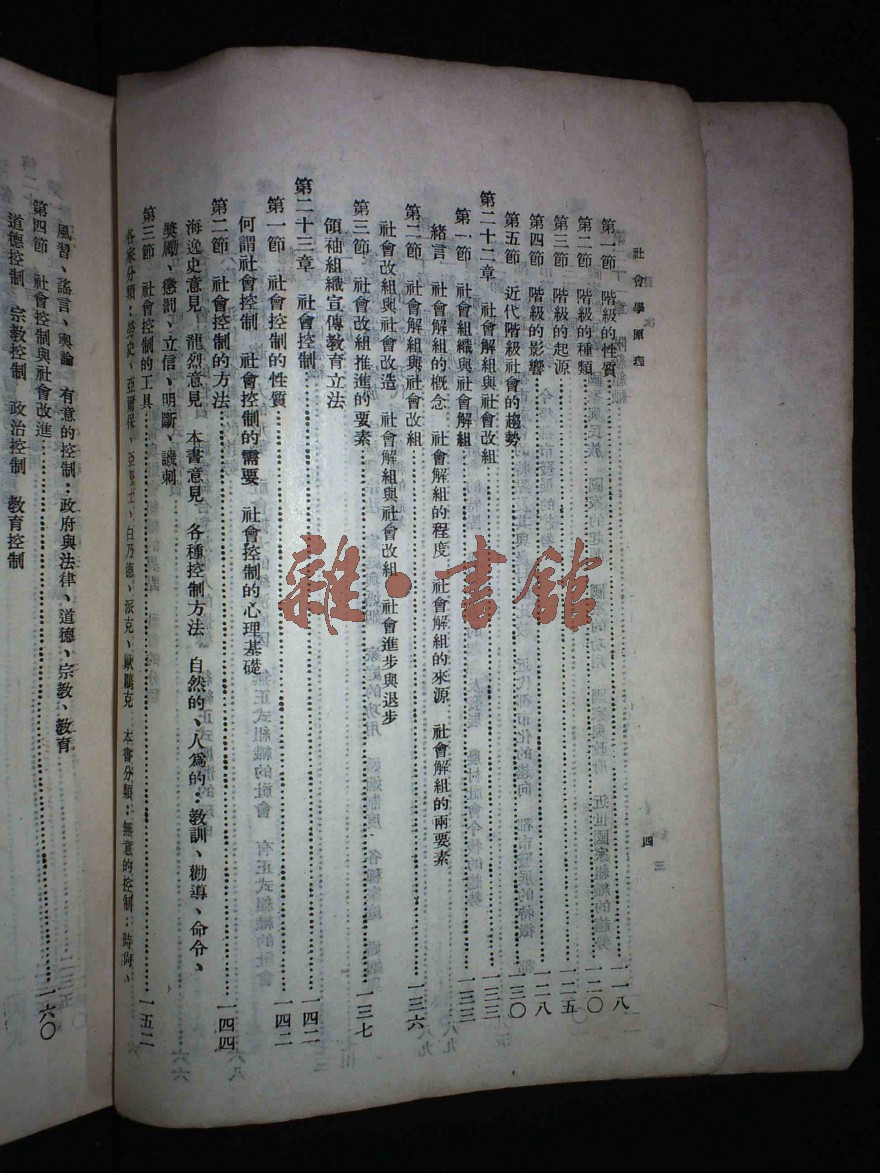 社會學原理
四
第一節 階級的性質……一一八
第二節 階級的種類……一二〇
第三節 階級的起源……一二五
第四節 階級的影響……一二八
第五節 近代階級社會的趨勢……一三〇
第二十二章 社會解組與社會改組……一三三
第一節 社會組織與社會解組……一三三
緒言 社會解組的概念 社會解組的程度 社會解組的來源 社會解組的兩要素
第二節 社會解組與社會改組……一三六
社會改組與社會改造 社會解組與社會改組 社會進步與退步
第三節 社會改組推進的要素……一三七
領袖組織宣傳教育立法
第二十三章 社會控制……一四二
第一節 社會控制的性質……一四二
何謂社會控制 社會控制的需要 社會控制的心理基礎
第二節 社會控制的方法……一四四
海逸史意見 龍烈意見 本書意見 各種控制方法 自然的、人爲的：教訓、勸導、命令、
獎勵、懲罰、立信、明斷、譏刺
第三節 社會控制的工具……一五二
各家分類：勞史、亞爾保、白乃德、派克、歐鵬克 本書分類：無意的控制：時尚、
風習、謠言、輿論 有意的控制：政府與法律、道德、宗教、教育
第四節 社會控制與社會改進……一六〇
道德控制 宗教控制 政治控制 教育控制
雜·書館